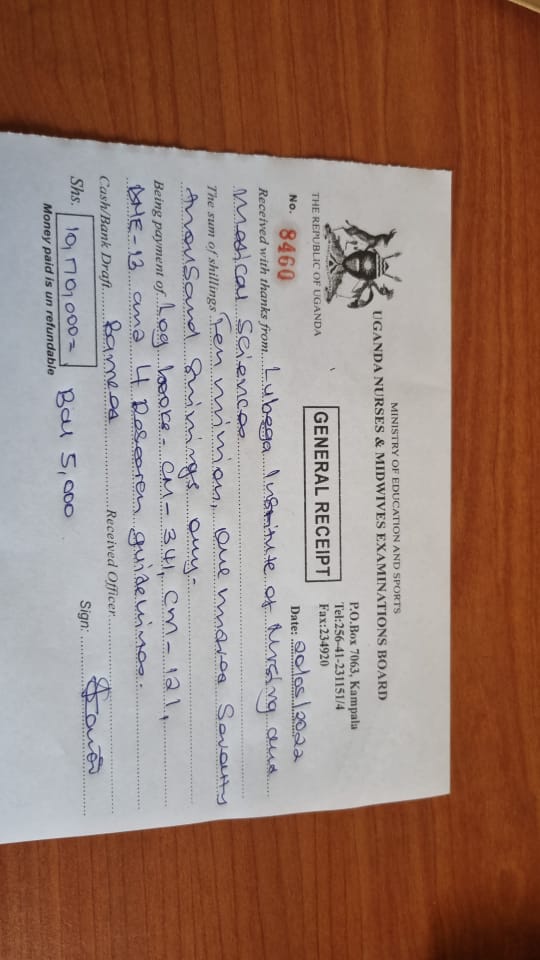 MINISTRY OF EDUCATION AND SPORTS
UGANDA NURSES & MIDWIVES EXAMINATIONS BOARD
P.O.Box 7063, Kampala
Tel:256-41-231151/4
Fax:234920
THE REPUBLIC OF UGANDA
GENERAL RECEIPT
No. 8460
Date: 20/05/2022
Received with thanks from Lubega Institute of Nursing and
Medical Sciences
The sum of shillings Ten million, one hundred Seventy
thousand shillings only-
Being payment of Log books- CM- 341, CM-121,
and 4 Research guidelines.
Cash/Bank Draft Received Officer
Shs. 10,170,000= Bal 5,000 Sign:
Money paid is un refundable